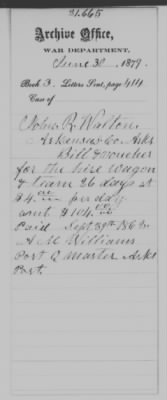 21.665
Archive Office,
WAR DEPARTMENT,
June 30, 1879.
Book 3. Letters Sent, page 414
Case of
John R. Walton
Arkansas Co. Arks
Bill & voucher
for the hire wagon
& team 26 days at
$4.00 per day
amt $104.00
Paid Sept 29th 1862
A M Williams
Post Q Master Arks
Post